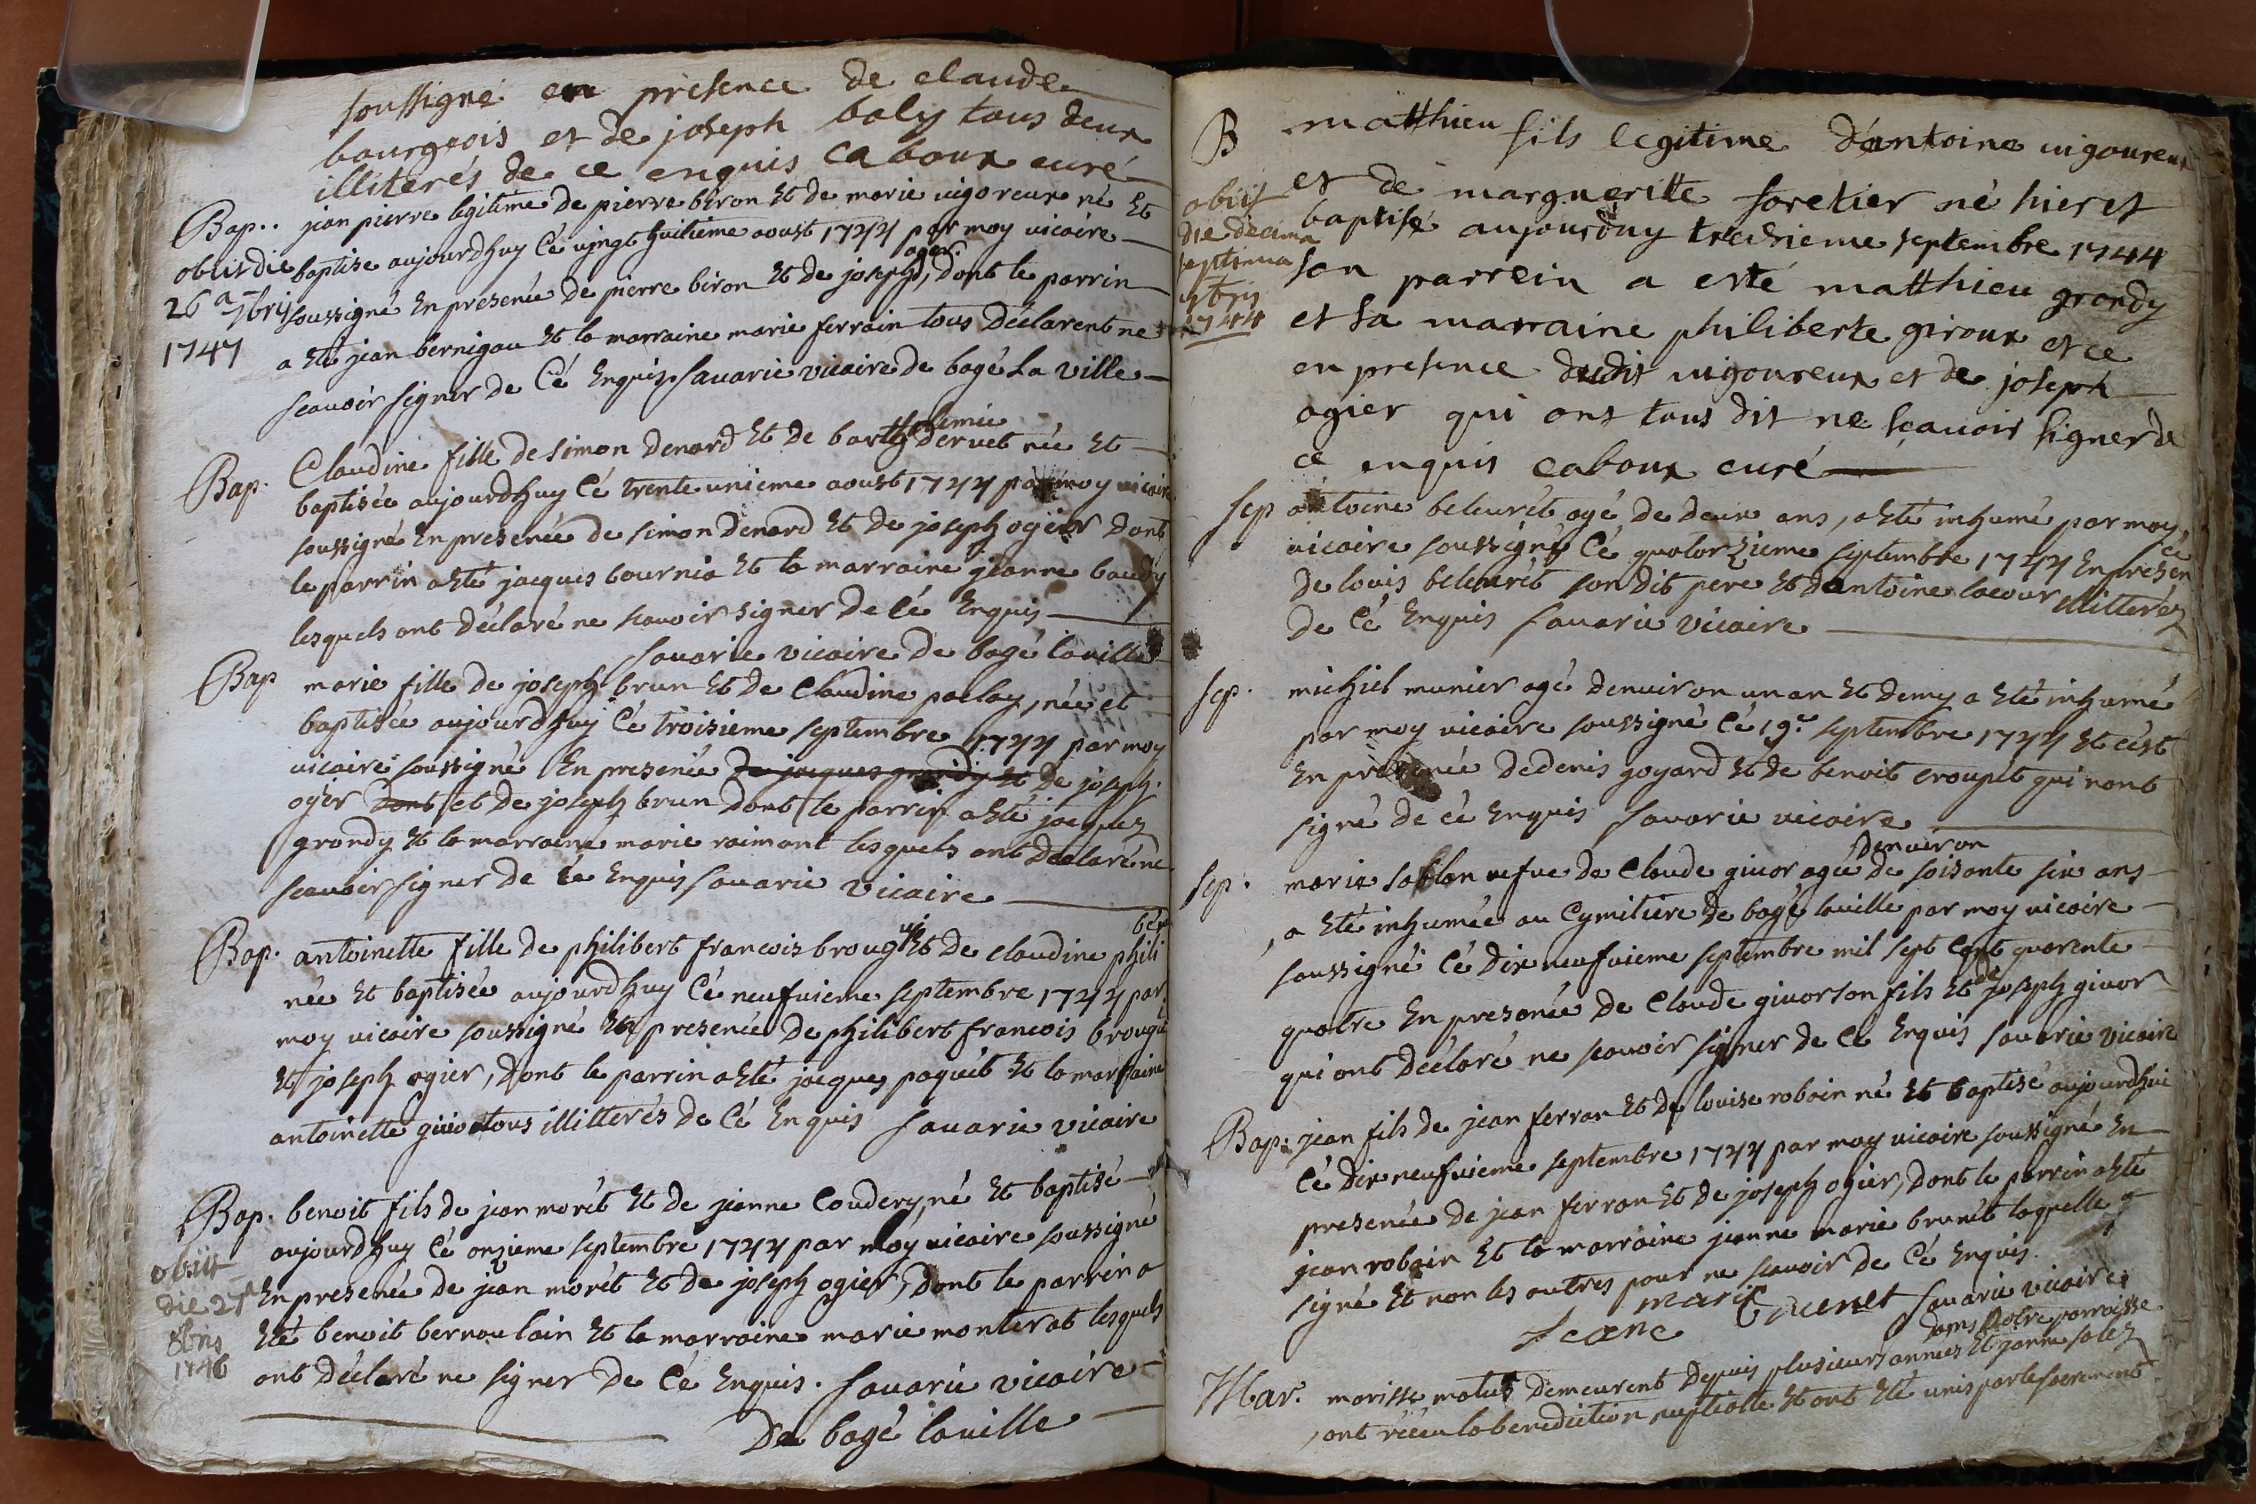 soussigné en présence de claude
bourgeois et de joseph boly tous deux
illiterés de ce enquis caboux curé
Bap.. jean pierre legitime de pierre biron et de marie vigoreux né et
obiit die baptise aujourdhuy cé vingt huitieme aoust 1744 par moy vicaire
26a 7bris soussigné en presence de pierre biron et de joseph ogier, dont le parrin
1747 a eté jean bernigau et la marraine marie ferrain tous déclarent ne
scavoir signer de cé enquis savarie vicaire de bagé la ville
Bap. Claudine fille de simon denard et de barthelemie dervet née et
baptisée aujourdhuy cé trente unieme aoust 1744 par moy vicaire
soussigné en presence de simon denard et de joseph ogier dont
le parrin a eté jacques bournia et la marraine jeanne baudy
lesquels ont déclaré ne scavoir signer de cé enquis
savarie vicaire de bagé laville
Bap marie fille de joseph brun et de claudine paclay, née et
baptisée aujourdhuy cé troisieme septembre 1744 par moy
vicaire soussigné en presence de jacques grandy et de joseph
ogier dont et de joseph brun dont le parrin a eté jacques
grandy et la marraine marie raimont lesquels ont déclaré ne
scavoir signer de cé enquis savarie vicaire
Bap. antoinette fille de philibert francois brougui et de claudine philiber
née et baptisée aujourdhuy cé neufuieme septembre 1744 par
moy vicaire soussigné en presence de philibert francois brougui
et joseph ogier, dont le parrin a eté jacques paquét et la marraine
antoinette guiot tous illitterés de cé enquis savarie vicaire
Bap. benoit fils de jean morét et de jeanne coudery, né et baptisé
aujourdhuy cé onzieme septembre 1744 par moy vicaire soussigné
obiit
die 27a en presence de jean morét et de joseph ogier, dont le parrin a
8bris eté benoit bernoulain et la marraine marie monterat lesquels
1746 ont déclaré ne signer de cé enquis. savarie vicaire
De bagé laville
B matthieu fils legitime d'antoine vigoureux
obiit et de marguerite foretier né hier et
die decima baptisé aujourduy treisieme septembre 1744
septima son parrein a esté matthieu grandy
7bris
1744 et sa marraine philiberte giroux et ce
en presence dudit vigoureux et de joseph
ogier qui ont tous dit ne sçavoir signer de
ce enquis caboux curé
sep antoine beleurét agé de deux ans, a eté inhumé par moy
vicaire soussigné cé quatorzieme septembre 1744 en presencé
de louis beleurét son dit pere et dantoine lacour illitterés
de cé enquis savarie vicaire
sep. michiel munier agé denuiron un an et demy a eté inhumé
par moy vicaire soussigné cé 19e septembre 1744 et cést
en presence de denis goyard et de benoit croupét qui nont
signé de cé enquis savarie vicaire
sep. marie sablon vefue de claude givor agée denuiron de soisante six ans
, a eté inhumée au cymitiere de bagé laville par moy vicaire
soussigné cé dix neufuieme septembre mil sept cent quarente
quatre en presence de claude givor son fils et de joseph givor
qui ont déclaré ne scavoir signer de cé enquis savarie vicaire
Bap: jean fils de jean ferran et de louise robain né et baptisé aujourdhui
cé dix neufuieme septembre 1744 par moy vicaire soussigné en
presence de jean ferran et de joseph ogier, dont le parrin a eté
jean robain et la marraine jeanne marie brunét laquelle a
signé et non les autres pour ne scavoir de cé enquis.
jeane marie brunet savarie vicaire
dans notre parroisse
Mar. morisse matus demeurent depuis plusieurs années et jeanne salez
, ont récéu la benediction nuptialle et ont eté unis par le sacrement